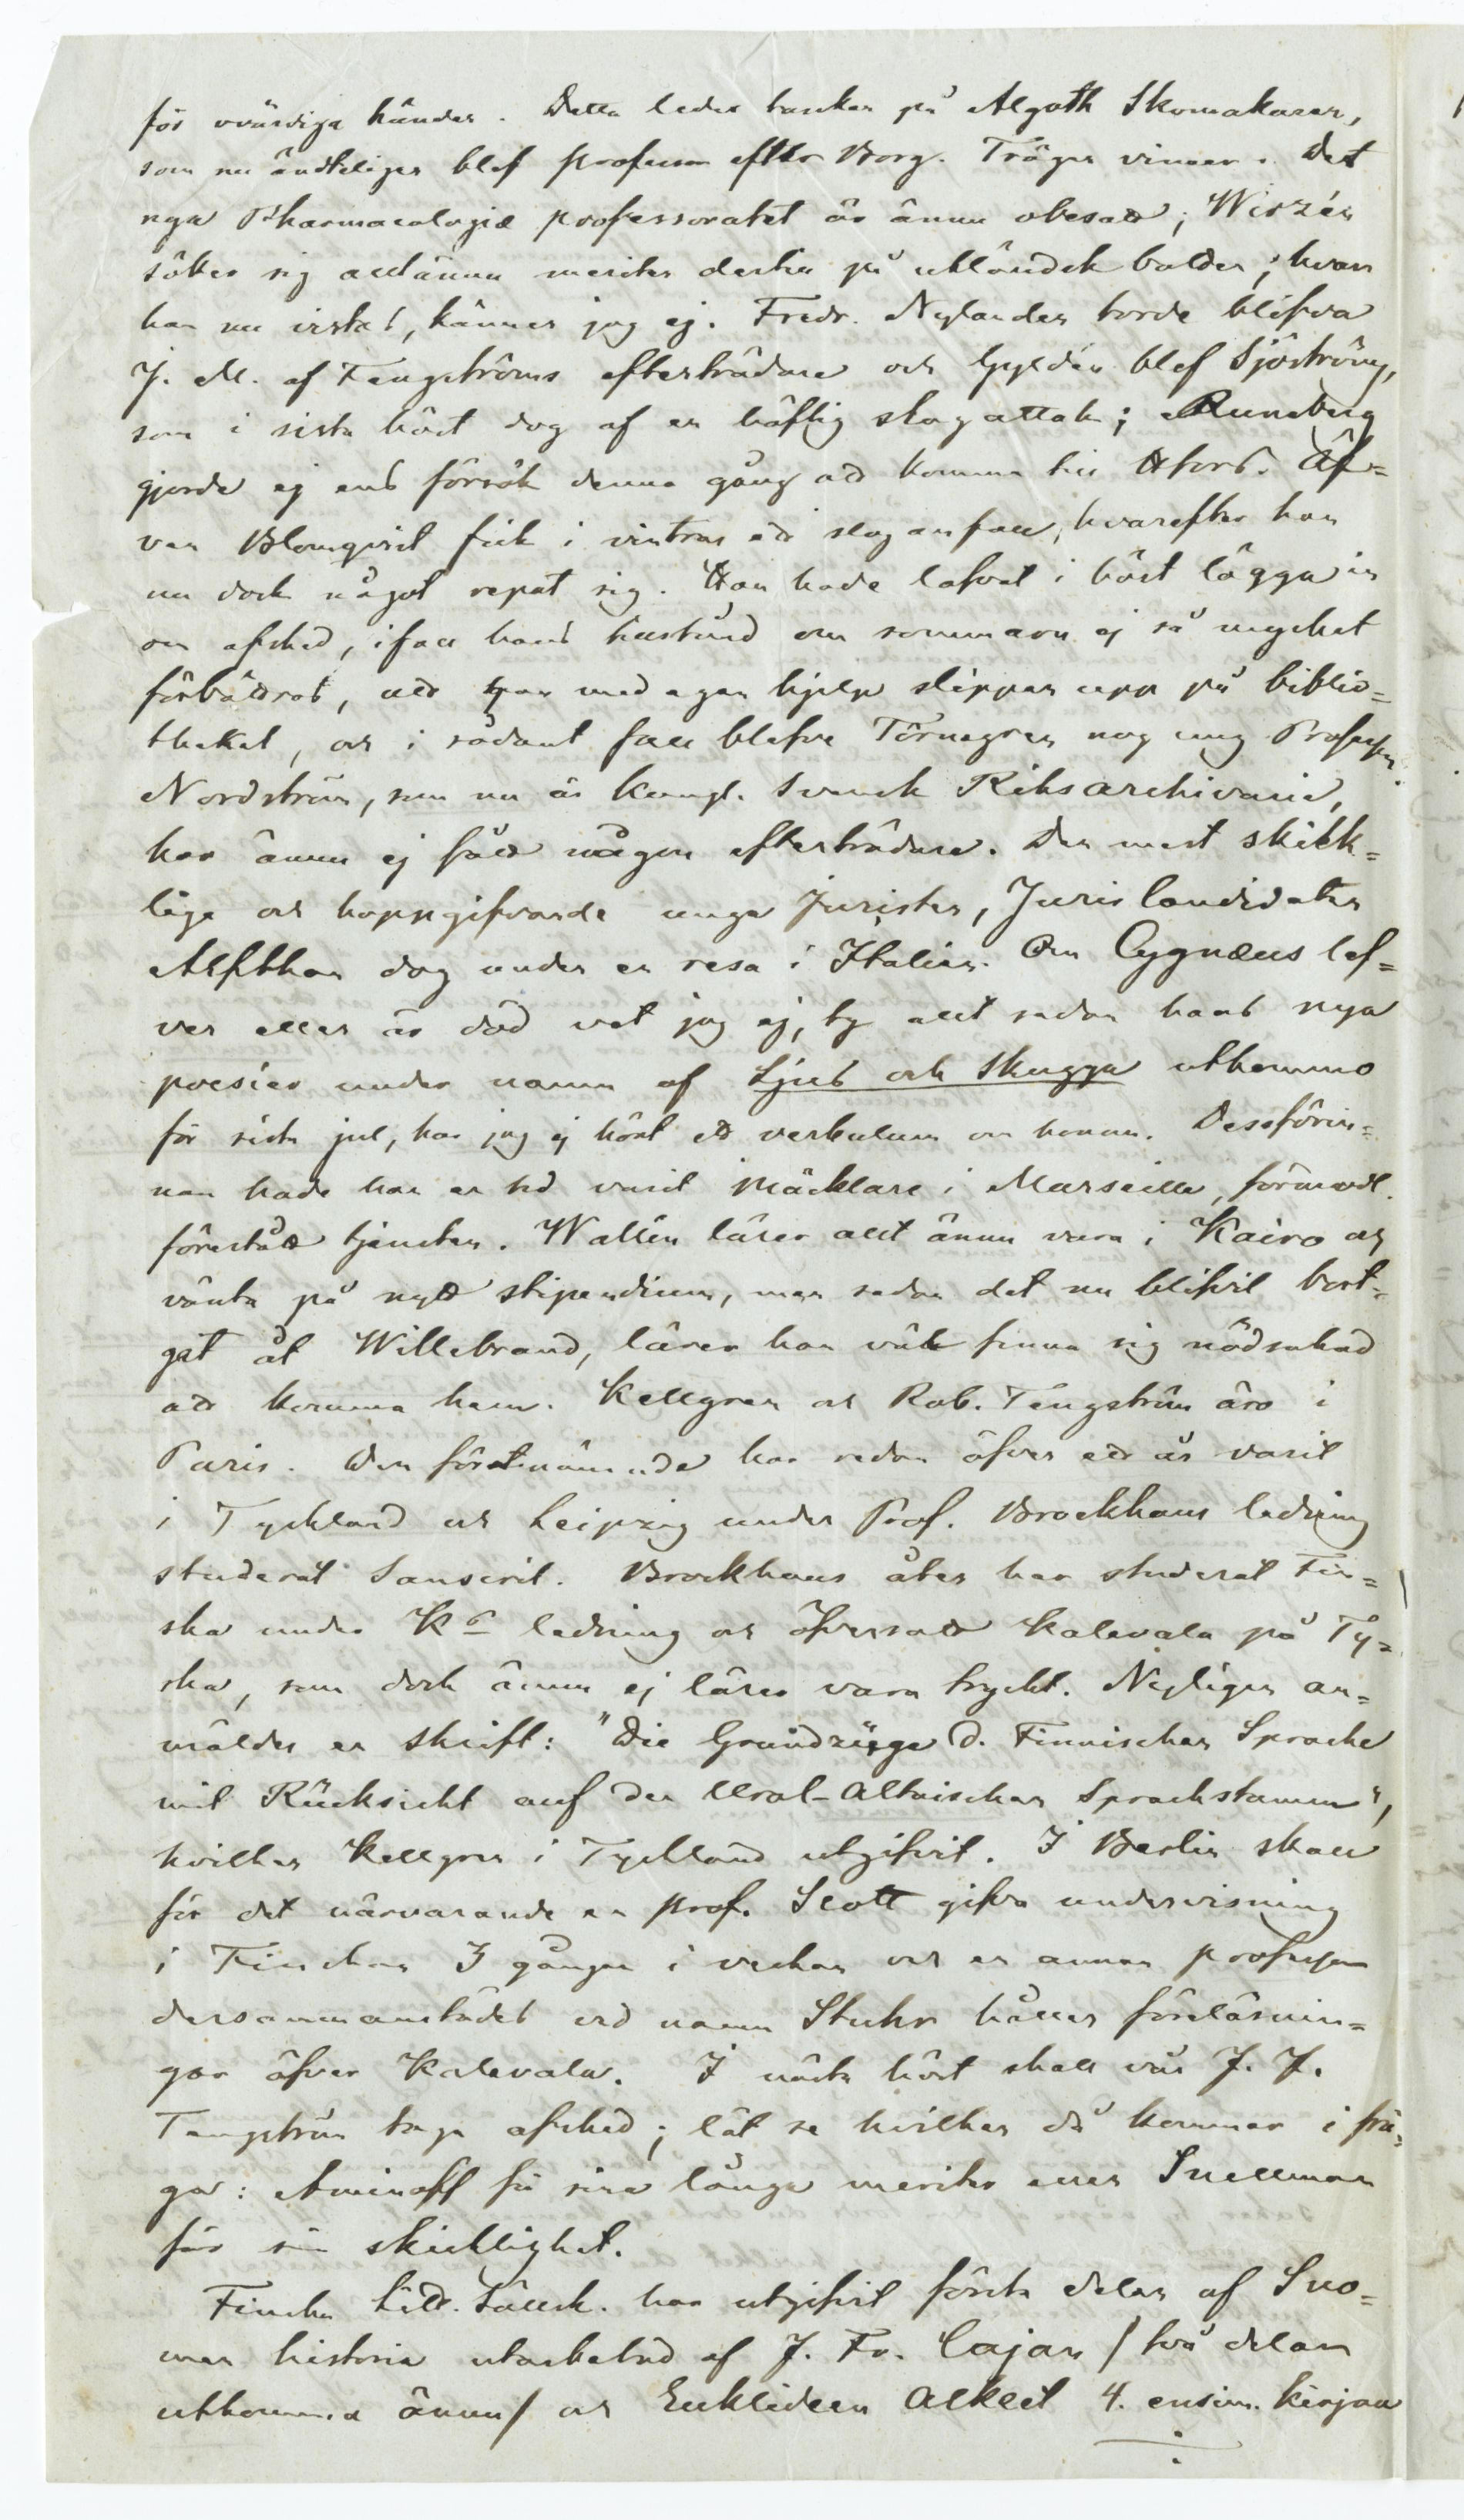 för ovärdiga händer. Detta leder tanken på Algoth Skomakaren,
som nu ändteligen blef professor efter Borg. Trägen vinner. Det
nya Pharmacologiæ professoratet är ännu obesatt; Wirzén
söker sig alltännu meriter dertill på utländsk botten; hvar
han nu vistas, känner jag ej. Fredr. Nylander torde blifva
J. M. af Tengströms efterträdare och Gyldén blef Sjöströms,
som i sista höst dog af en häftig slagattak; Runeberg
gjorde ej ens försök denna gång att komma till Hfors. Äf=
ven Blomqvist fick i vintras ett slaganfall, hvarefter han
nu dock något repat sig. Han hade lofvat i höst lägga in
om afsked, ifall hans helsotillstånd om sommaren ej så mycket
förbättras, att han med egen hjelp slipper upp på biblio=
theket, och i sådant fall blefve Törnegren nog ung Professor.
Nordström, som nu är kongl. Svensk Riksarchivarie,
har ännu ej fått någon efterträdare. Den mest skick=
lige och hoppgifvande unga Juristen, Juris Candidaten
Alfthan dog under en resa i Italien. Om Cygnæus lef=
ver eller är död vet jag ej, ty allt sedan hans nya
poesier under namn af Ljus och Skugga utkommo
för sista jul, har jag ej hört ett verbulum om honom. Dessförin=
nan hade han en tid varit Mäcklare i Marseille, förmodl.
förestått tjensten. Wallin lärer allt ännu vara i Kairo och
vänta på nytt stipendium, men sedan det nu blifvit bort=
gat åt Willebrand, lärer han väl finna sig nödsakad
att komma hem. Kellgren och Rob. Tengström äro i
Paris. Den förstnämnde har redan öfver ett år varit
i Tyskland och Leipzig under Prof. Brockhaus ledning
studerat Sanscrit. Brockhaus åter har studerat Fin=
ska under K&s ledning och öfversatt Kalevala på Ty=
ska, som dock ännu ej lärer vara tryckt. Nyligen an=
mäldes en skrift: "Die Grundzüge d. Finnischen Sprache
mit Rücksicht auf den Ural-Altaischen Sprachstamm",
hvilken Kellgren i Tyskland utgifvit. I Berlin skall
för det närvarande en prof. Scott gifva undervisning
i Finskan 3 gånger i veckan och en annan professor
dersammanstädes vid namn Stuhr håller föreläsnin=
gar öfver Kalevala. I nästa höst skall vår J. J.
Tengström taga afsked; låt se hvilken då kommer i frå=
ga: Aminoff för sina långa meriter eller Snellman
för sin skicklighet.
Finska Litt. Sällsk. har utgifvit första delen af Suo=
men historia utarbetad af J. Fr. Cajan / två delar
utkomma ännu / och Euklideen Alkeet 4. ensim. kirjaa